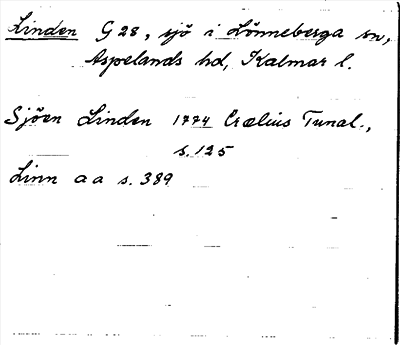 Linden G 28, sjö i Lönneberga sn,
Aspelands hd, Kalmar l.
Sjöen Linden 1774 Crælius Tunal.,
s. 125
Linn a a s. 389